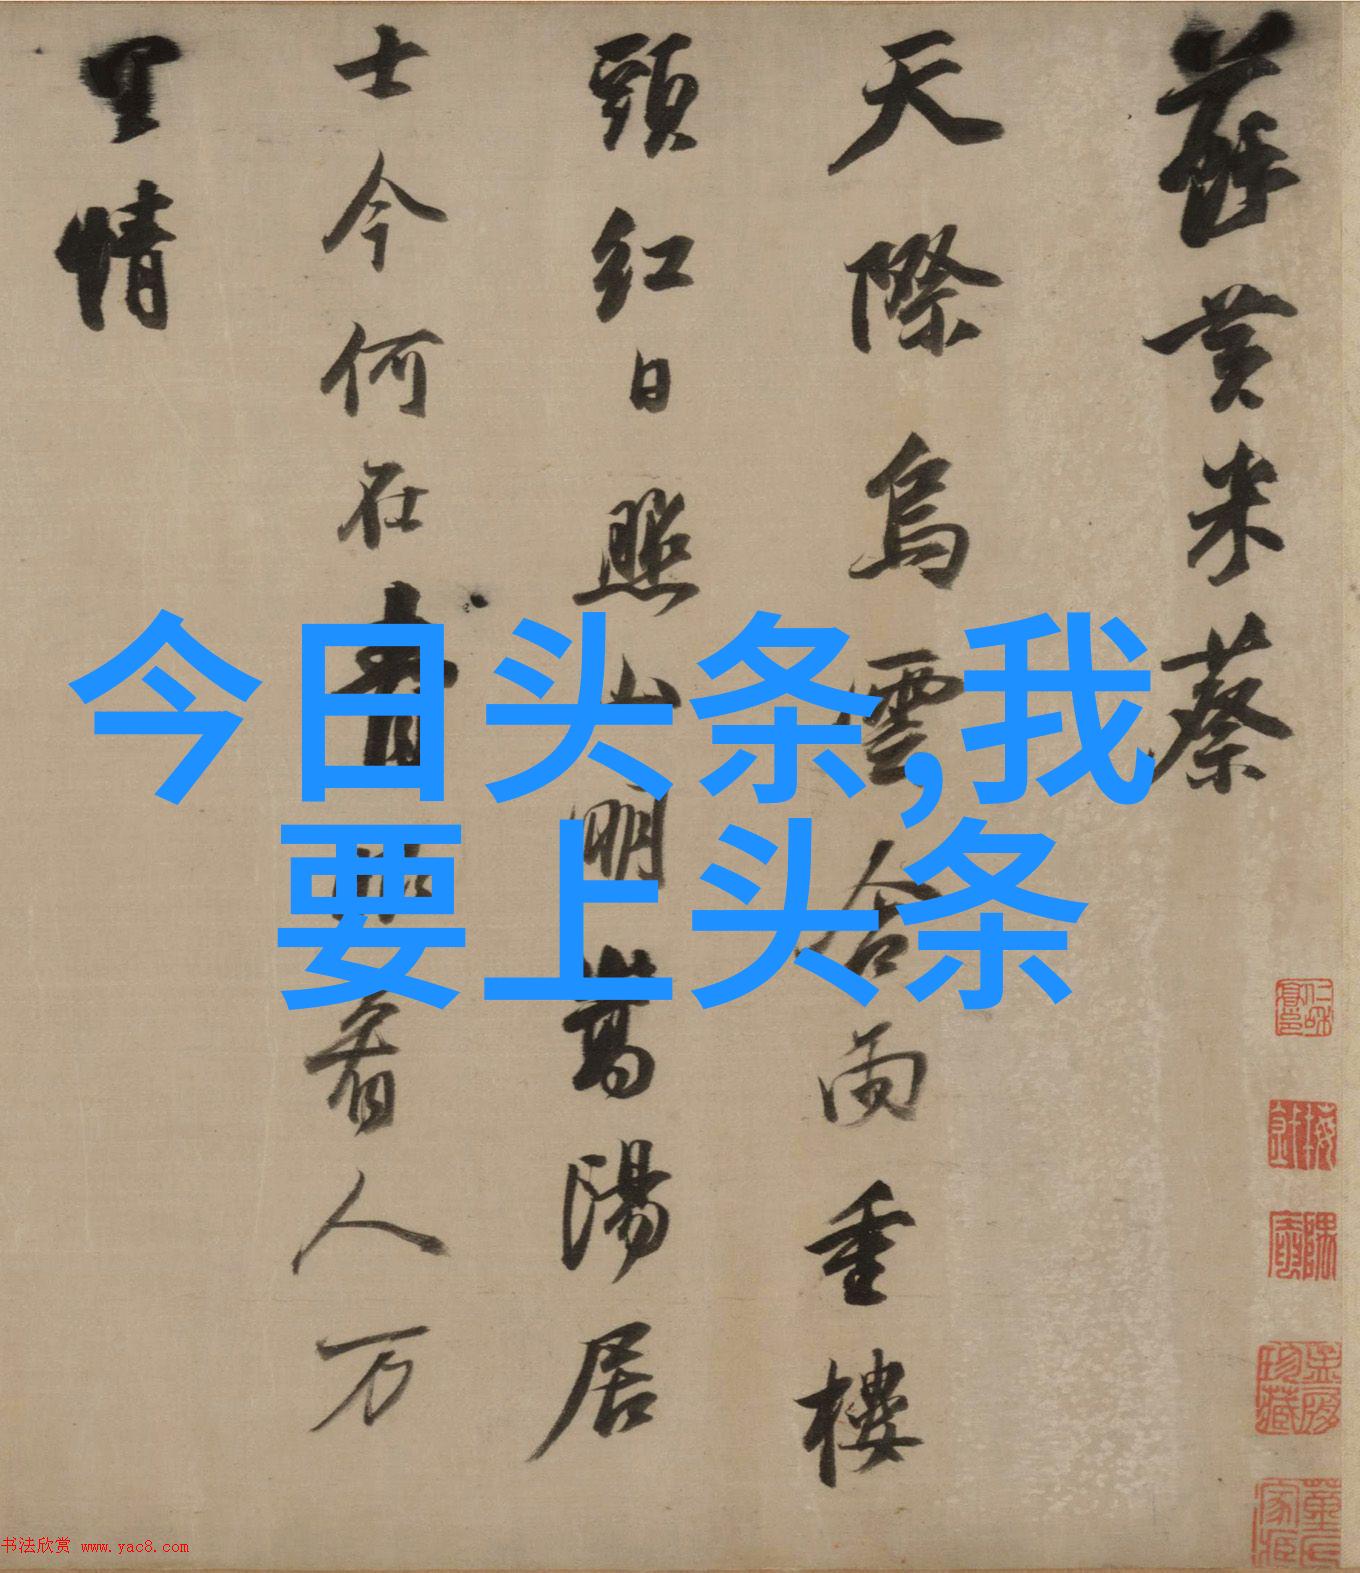 蘇黄米蔡
天際烏雲含雨重樓
頭紅日照山明嵩陽居
士今何在青眼看人万
里情
今日头条,我
要上头条
书法欣赏 www.yac8.com